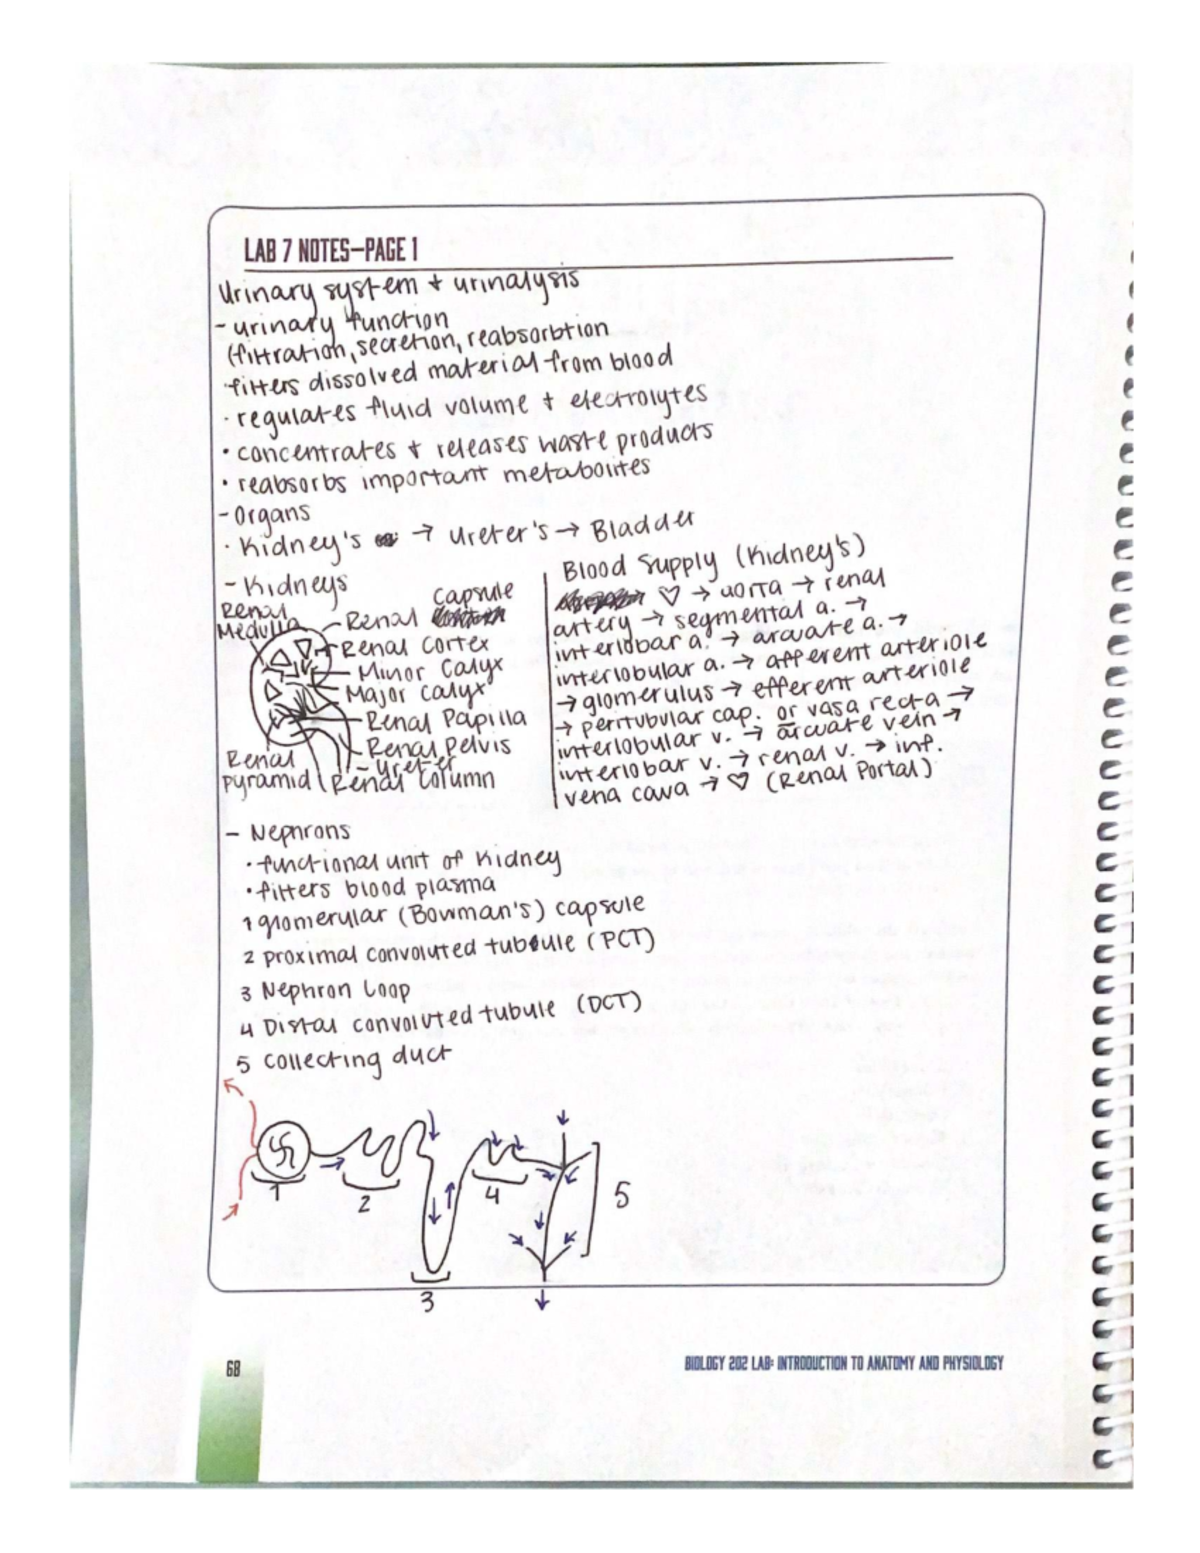 LAB 7 NOTES—PAGE 1
Urinary system + urinalysis
- urinary function
(filtration, secretion, reabsorbtion
· filters dissolved material from blood
· regulates fluid volume + electrolytes
· concentrates + releases waste products
· reabsorbs important metabolites
- Organs
· Kidney's → Ureter's → Bladder
- Kidneys
Renal Medulla
Renal capsule
Renal Cortex
Minor Calyx
Major Calyx
Renal Papilla
Renal Pelvis
Ureter
Renal Column
Renal pyramid
Blood Supply (Kidney's)
♡ → aorta → renal
artery → segmental a. →
interlobar a. → arcuate a. →
interlobular a. → afferent arteriole
→ glomerulus → efferent arteriole
→ peritubular cap. or vasa recta →
interlobular v. → arcuate vein →
interlobar v. → renal v. → inf.
vena cava → ♡ (Renal Portal)
- Nephrons
· functional unit of kidney
· filters blood plasma
1 glomerular (Bowman's) capsule
2 proximal convoluted tubule (PCT)
3 Nephron Loop
4 Distal convoluted tubule (DCT)
5 collecting duct
1
2
3
4
5
68
BIOLOGY 202 LAB: INTRODUCTION TO ANATOMY AND PHYSIOLOGY